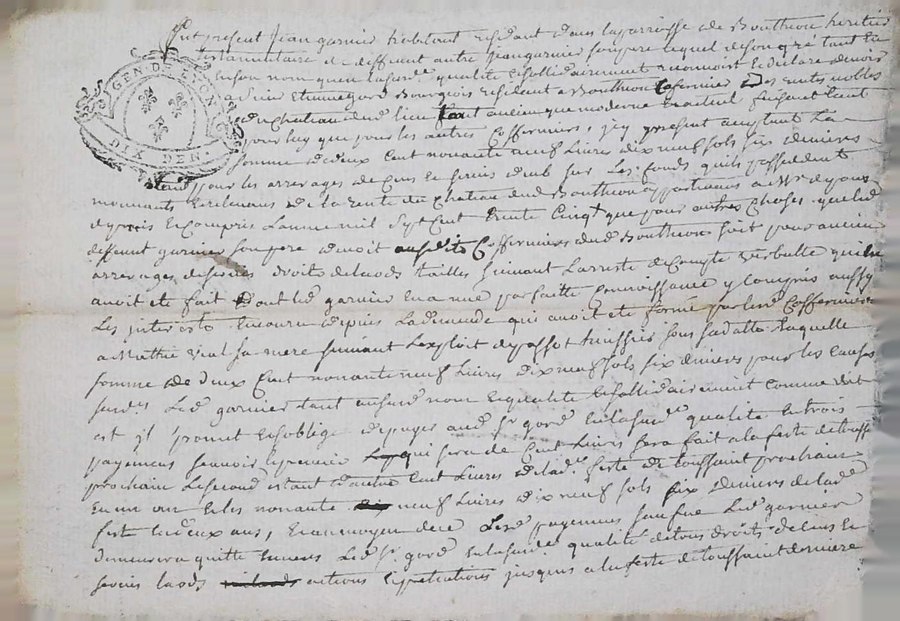 GEN. DE LYON
DIX DEN.
fut present Jean garnier habitant residant dans la parroisse de Boutheon heritier
testamentaire de deffunt autre Jean garnier son pere lequel de son gré tant en
son nom qu'en lad qualité et sollidairement reconnoit et declare devoir
a Bourgeois residant a Bouthéon Coffermier des rentes nobles
du Chateau dud lieu tant ancien que moderne faisant tant
pour luy que pour les autres Coffermiers, icy present acceptant La
somme de deux Cent nonante neuf Livres dix neuf sols six deniers
pour les arrerages de Cens et servis deub sur Les fonds qu'ils possedent
mouvants de la rente du Chateau dud Bouthéon appartenant a Mr
depuis et compris Lannée mil sept Cent trente Cinq que pour autres choses que led
deffunt garnier son pere devoit ausdits Coffermiers dud Bouthéon soit pour anciens
arrerages droits de laods tailles suivant Larreté de Compte verballe qui en
avoit eté fait dont led garnier en a une parfaitte connoissance y Compris aussy
Les interests encouru depuis La demande qui avoit eté formé par lesd Coffermiers
a vial sa mere suivant Lexploit de huissier sous sa datte Laquelle
somme de deux Cent nonante neuf Livres dix neuf sols six deniers pour les causes
surd. Led garnier tant ausud nom et qualité et sollidairement comme dit
est il promet et soblige de payer aud Sr gord en lasusd qualité en trois
payemens scavoir le premier qui sera de Cent Livres sera fait a la feste de toussts
prochain Le second estant de autre Cent Livres de lad feste de toussaint prochain
en un an et les nonante neuf Livres dix neuf sols six deniers de lad
feste en deux ans, et au moyen de Lesd payemens Led garnier
demeurera quitte envers Led Sr gord en lasusd qualité de tous droits de Cens et
servis laods actions et petitions jusques a la feste de toussaint derniere